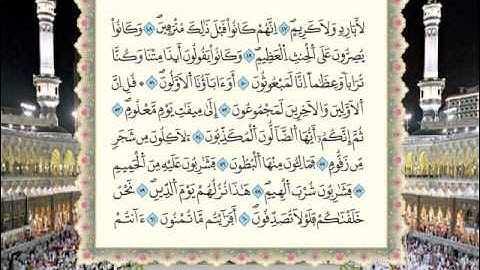 لَّا بَارِدٍ وَلَا كَرِيمٍ إِنَّهُمْ كَانُواْ قَبْلَ ذَٰلِكَ مُتْرَفِينَ وَكَانُواْ
يُصِرُّونَ عَلَى اَلْحِنثِ اِلْعَظِيمِ وَكَانُواْ يَقُولُونَ أَيذَا مِتْنَا وَكُنَّا
تُرَاباً وَعِظَٰماً اِنَّا لَمَبْعُوثُونَ أَوَءَابَآؤُنَا اَلَاوَّلُونَ قُلِ اِنَّ
اَلَاوَّلِينَ وَالَاخِرِينَ لَمَجْمُوعُونَ إِلَىٰ مِيقَٰتِ يَوْمٍ مَّعْلُومٍ
ثُمَّ إِنَّكُمُۥٓ أَيُّهَا اَلضَّآلُّونَ اَلْمُكَذِّبُونَ لَأَكِلُونَ مِن شَجَرٍ
مِّن زَقُّومٍ فَمَالِـُٔونَ مِنْهَا اَلْبُطُونَ فَشَٰرِبُونَ عَلَيْهِ مِنَ اَلْحَمِيمِ
فَشَٰرِبُونَ شُرْبَ اَلْهِيمِ هَٰذَا نُزُلُهُمْ يَوْمَ اَلدِّينِ نَحْنُ
خَلَقْنَٰكُمْ فَلَوْلَا تُصَدِّقُونَ أَفَرَٰٓيْتُم مَّا تُمْنُونَ ءَآنتُمْ